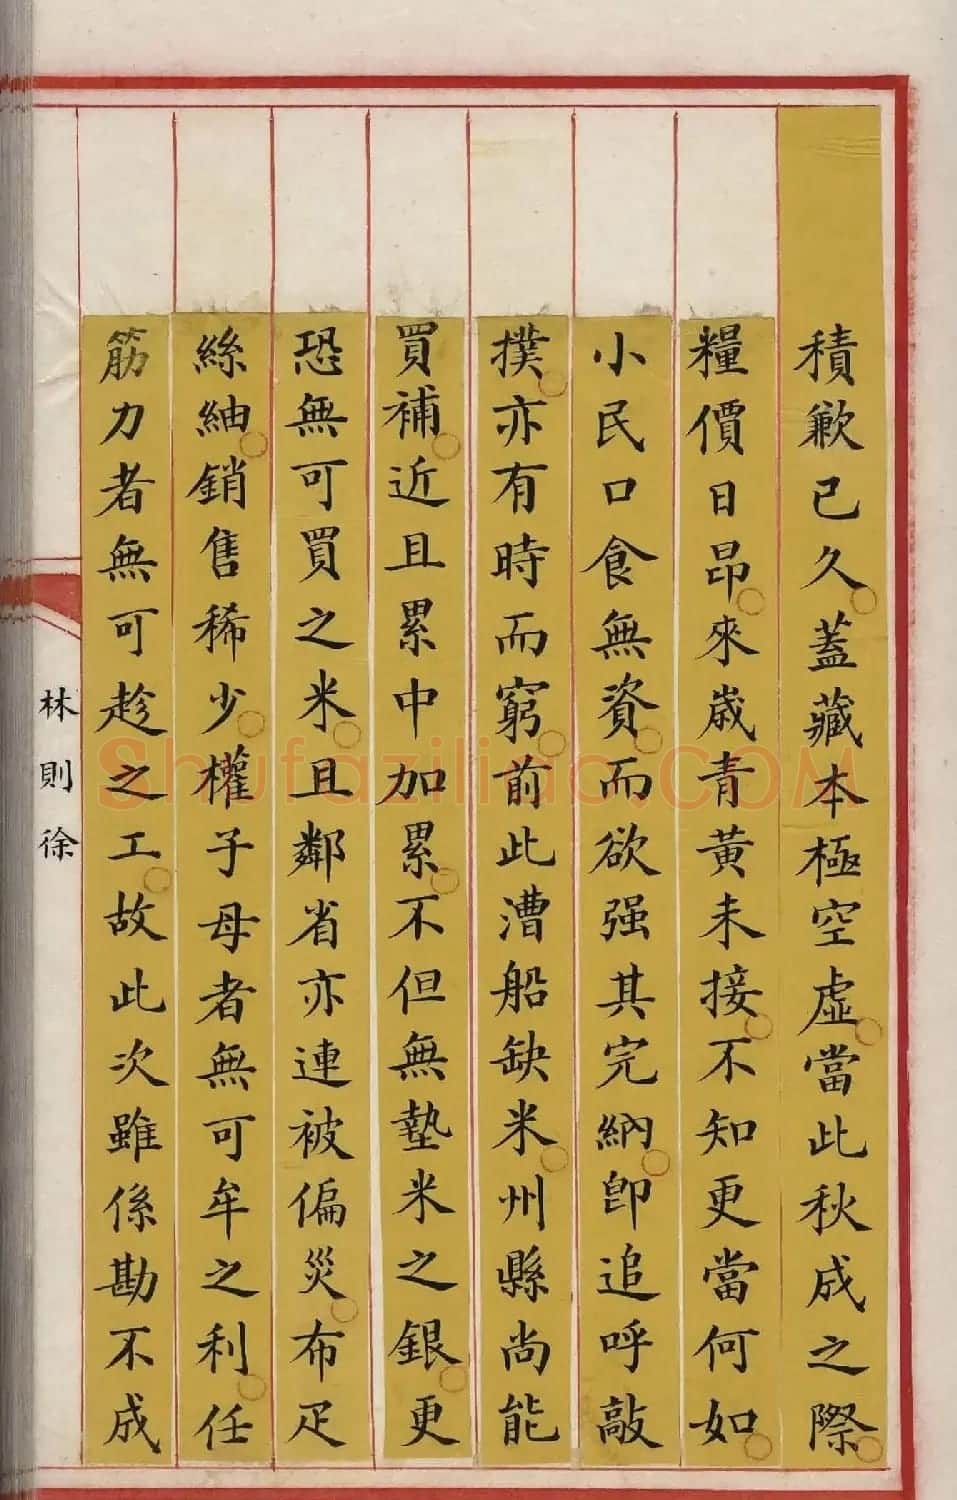 積歉已久蓋藏本極空虛當此秋成之際
糧價日昂來歲青黃未接不知更當何如
小民口食無資而欲强其完納卽追呼敲
撲亦有時而窮前此漕船缺米州縣尚能
買補近且累中加累不但無墊米之銀更
恐無可買之米且鄰省亦連被偏災布疋
絲紬銷售稀少權子母者無可牟之利任
筋力者無可趁之工故此次雖係勘不成
林則徐
Shufaziliao.COM